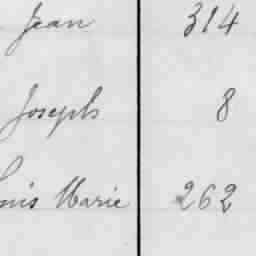 Jean 314
Joseph 8
Marie 262